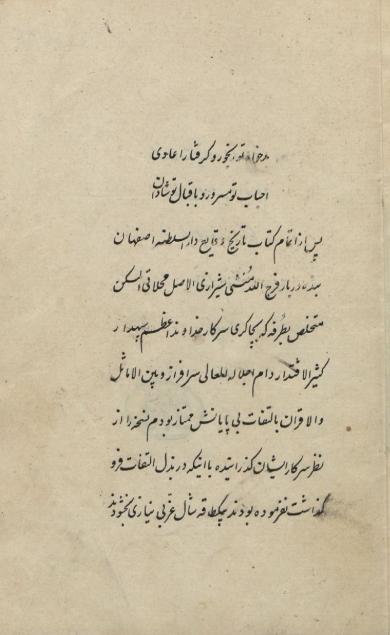 بدخواه تو رنجور و گرفتار اعادی
احباب تو مسرور و باقبال تو شادان
پس از اتمام کتاب تاریخ وقایع دارالسلطنه اصفهان
بنده دربار فرج الله منشی شیرازی الاصل محلاتی المسکن
متخلص بطرفه که بچاکری سرکار خداوند اعظم سپهدار
کثیر الاقتدار دام اجلاله العالی سرافراز و بین الاماثل
والاقران بالتفات بی پایانش ممتاز بودم نسخه را از
نظر سرکار ایشان گذرانیده با اینکه در بذل التفات فرو
گذاشت نفرموده بودند یکطاقه شال عزتی نیازی بخشودند